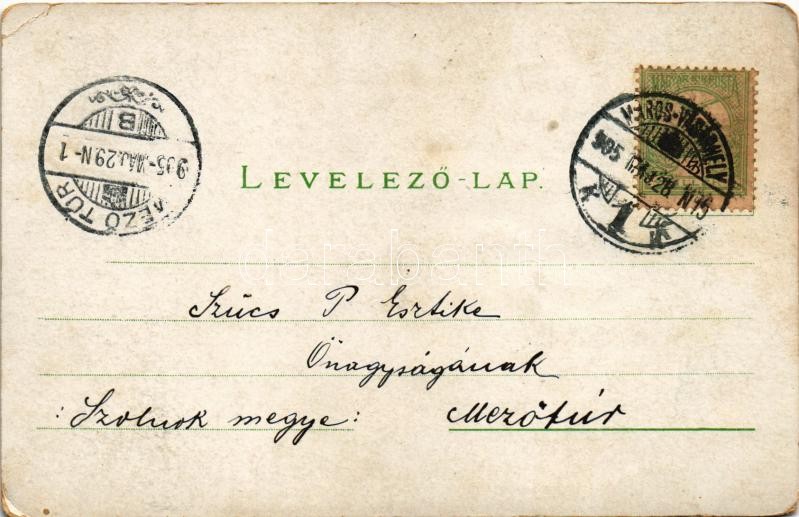 MAGYAR KIR. POSTA
MAROS-VÁSÁRHELY
905 MÁJ 28 N 5
1
K K
B
905 MÁJ. 29 N 1
MEZŐ TÚR
LEVELEZŐ-LAP.
darabanth
Szűcs P Esztike
Őnagyságának
: Szolnok megye : Mezőtúr